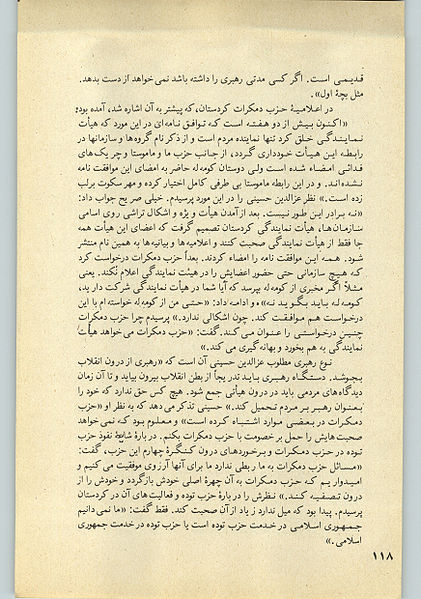 قدیمی است. اگر کسی مدتی رهبری را داشته باشد نمی خواهد از دست بدهد.
مثل بچهٔ اول».
در اعلامیهٔ حزب دمکرات کردستان، که پیشتر به آن اشاره شد، آمده بود:
«اکنون بیش از دو هفته است که توافق نامه ای در این مورد که هیأت
نمایندگی خلق کرد تنها نماینده مردم است و از ذکر نام گروه ها و سازمانها در
رابطه این هیأت خودداری گردد، از جانب حزب ما و ماموستا و چریک های
فدائی امضاء شده است ولی دوستان کومه له حاضر به امضای این موافقت نامه
نشده اند. و در این رابطه ماموستا بی طرفی کامل اختیار کرده و مهر سکوت بر لب
زده است.» نظر عزالدین حسینی را در این مورد پرسیدم. خیلی صریح جواب داد:
«نه برادر این طور نیست. بعد از آمدن هیأت و یژه و اشکال تراشی روی اسامی
سازمان ها، هیأت نمایندگی کردستان تصمیم گرفت که اعضای این هیأت همه
جا فقط از هیأت نمایندگی صحبت کنند و اعلامیه ها و بیانیه ها به همین نام منتشر
شود. همه این موافقت نامه را امضاء کردند. بعداً حزب دمکرات درخواست کرد
که هیچ سازمانی حتی حضور اعضایش را در هیئت نمایندگی اعلام نکند. یعنی
مثلاً اگر مخبری از کومه له بپرسد که آیا شما در هیأت نمایندگی شرکت دارید،
کومه له باید بگوید نه» و ادامه داد: «حتی من از کومه له خواسته ام با این
درخواست هم موافقت کند. چون اشکالی ندارد.» پرسیدم چرا حزب دمکرات
چنین درخواستی را عنوان می کند. گفت: «حزب دمکرات می خواهد هیأت
نمایندگی به هم بخورد و بهانه گیری می کند.»
نوع رهبری مطلوب عزالدین حسینی آن است که «رهبری از درون انقلاب
بجوشد. دستگاه رهبری باید تدریجاً از بطن انقلاب بیرون بیاید و تا آن زمان
دیدگاه های مردمی باید در درون هیأتی جمع شود. هیچ کس حق ندارد که خود را
بعنوان رهبر بر مردم تحمیل کند.» حسینی تذکر می دهد که به نظر او «حزب
دمکرات در بعضی موارد اشتباه کرده است» و معلوم بود که نمی خواهد
صحبت هایش را حمل بر خصومت با حزب دمکرات بکنم. در بارهٔ شایعهٔ نفوذ حزب
توده در حزب دمکرات و برخوردهای درون کنگرهٔ چهارم این حزب، گفت:
«مسائل حزب دمکرات به ما ربطی ندارد ما برای آنها آرزوی موفقیت می کنیم و
امیدواریم که حزب دمکرات به آن چهرهٔ اصلی خودش بازگردد و خودش را از
درون تصفیه کند.» نظرش را در بارهٔ حزب توده و فعالیت های آن در کردستان
پرسیدم. پیدا بود که میل ندارد زیاد از آن صحبت کند. فقط گفت: «ما نمی دانیم
جمهوری اسلامی در خدمت حزب توده است یا حزب توده در خدمت جمهوری
اسلامی.»
۱۱۸